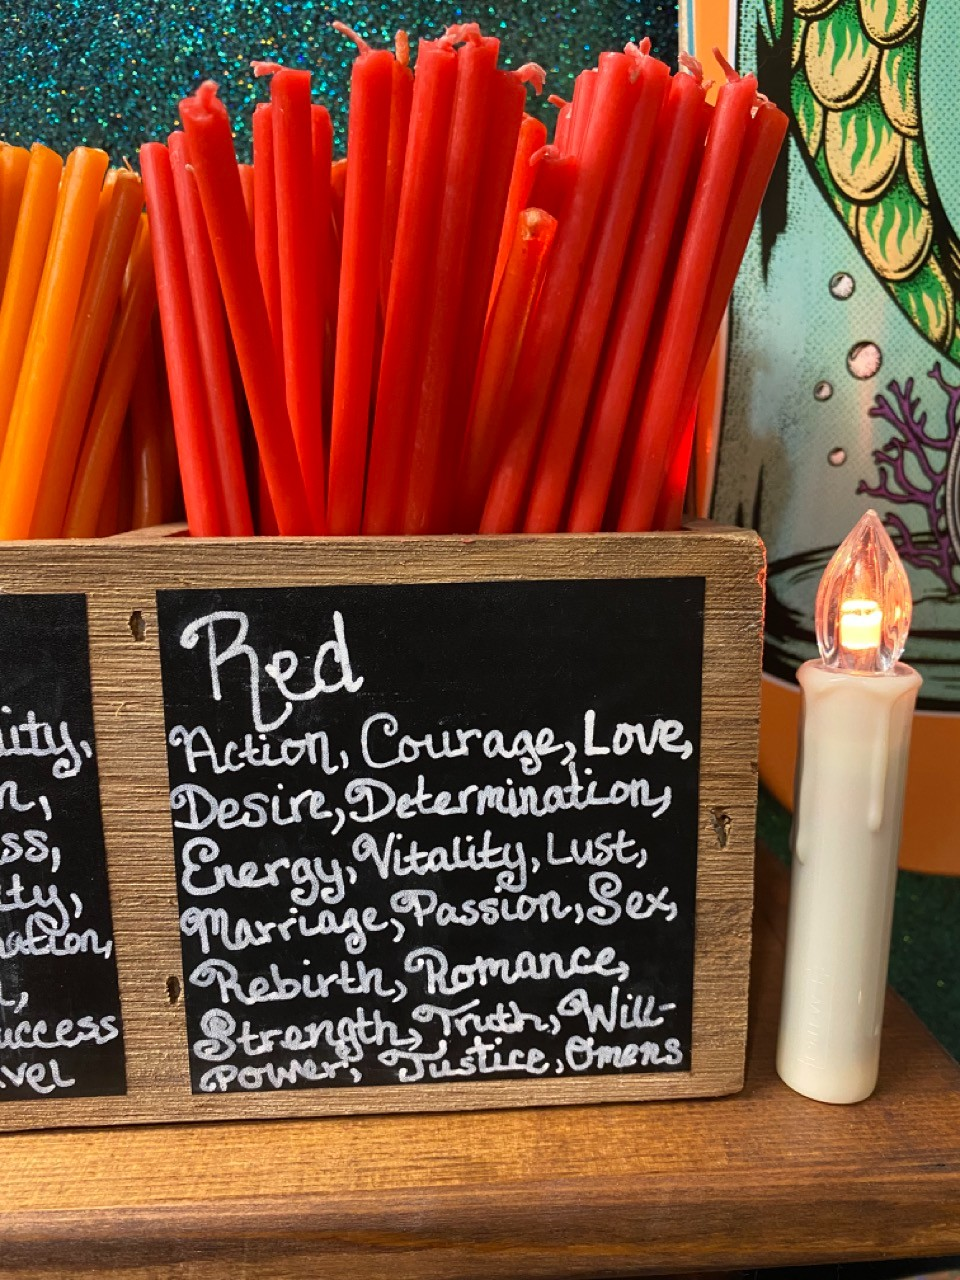 Red
Action, Courage, Love,
Desire, Determination,
Energy, Vitality, Lust,
Marriage, Passion, Sex,
Rebirth, Romance,
Strength, Truth, Will-
power, Justice, Omens